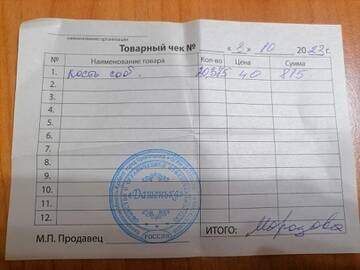 наименование организации
Товарный чек № «2» 10 2023 г.
№ Наименование товара Кол-во Цена Сумма
1. Кость соб. 20,375 40 815
2.
3.
4.
5.
6.
7.
8.
9.
10.
11.
12.
«Дашенька»
РОССИЯ
М.П. Продавец ИТОГО: Морозова